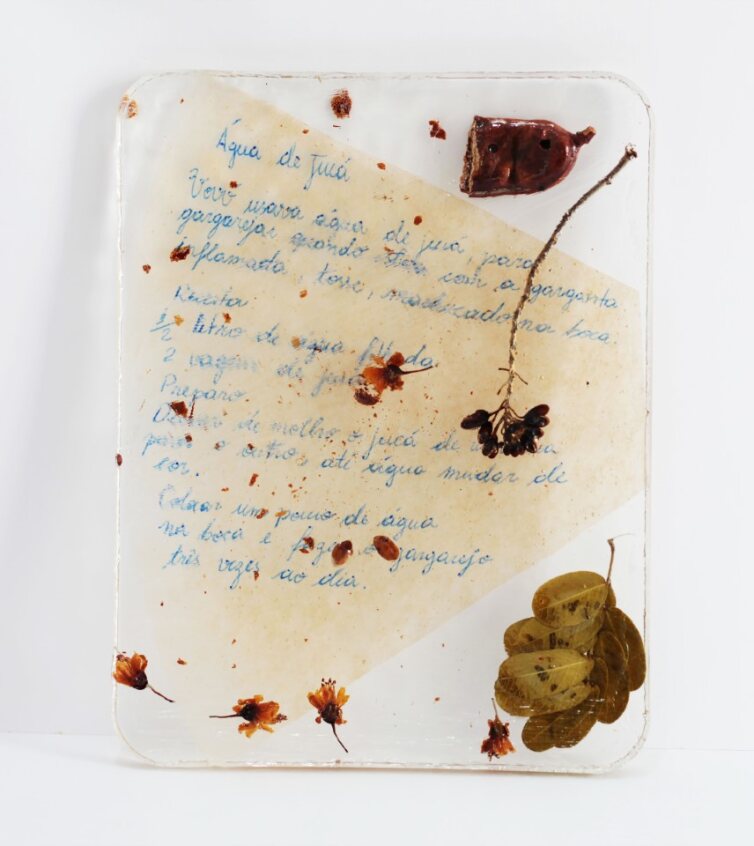 Água de jucá
Vovó usava água de jucá, para
gargarejar quando com a garganta
inflamada, tosse, machucado na boca.
Receita
1/2 litro de água filtrada
2 vagens de jucá
Preparo
Deixar de molho o jucá de um dia
para o outro, até água mudar de
cor.
Colocar um pouco de água
na boca e faça o gargarejo
três vezes ao dia.